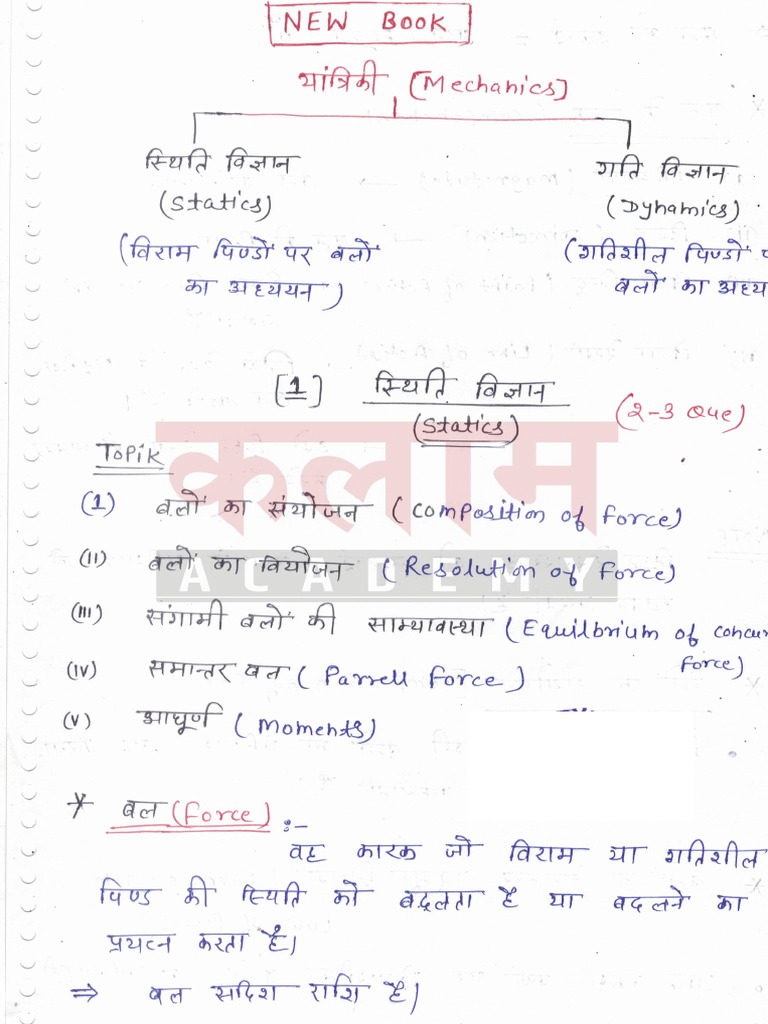 NEW BOOK
यांत्रिकी [Mechanics]
स्थिति विज्ञान
(Statics)
(विराम पिण्डों पर बलों
का अध्ययन)
गति विज्ञान
(Dynamics)
(गतिशील पिण्डों
बलों का
[1] स्थिति विज्ञान
(Statics)
(2-3 Que)
कलाम
ACADEMY
Topik
(1) बलों का संयोजन (Composition of force)
(II) बलों का वियोजन (Resolution of force)
(III) संगामी बलों की साम्यावस्था (Equilbrium of
force)
(IV) समान्तर बल (Parrell force)
(V) आघूर्ण (Moments)
* बल (Force) :-
वह कारक जो विराम या गतिशील
पिण्ड की स्थिति को बदलता है या बदलने का
प्रयत्न करता है।
⇒ बल सदिश राशि है।